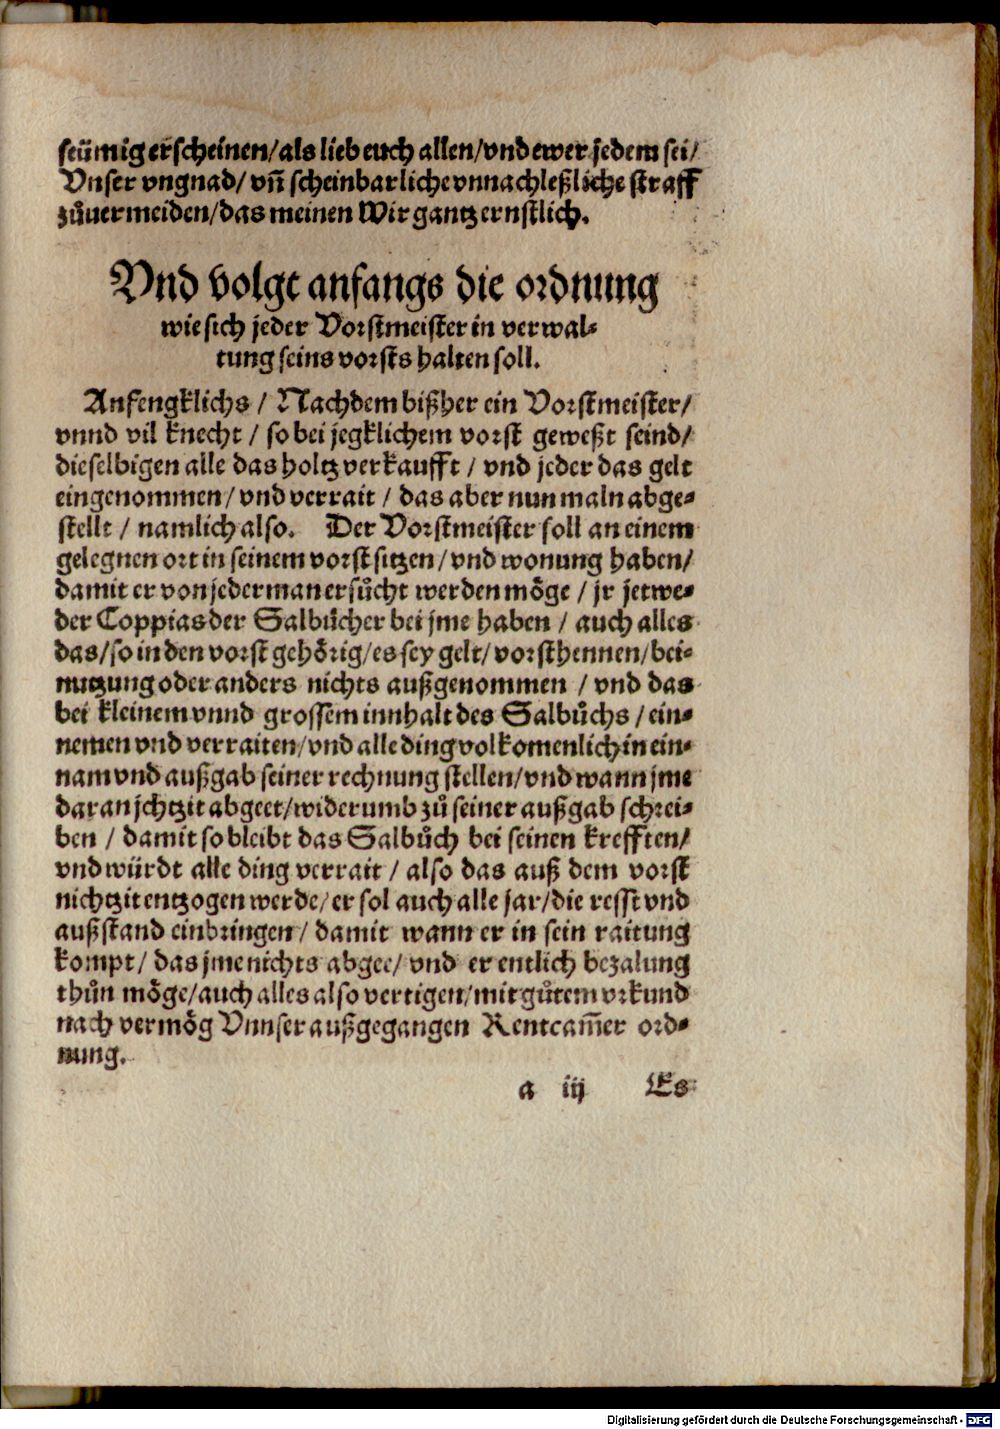 seümig erscheinen/als lieb euch allen/vnd ewer jedem sei/
Vnser vngnad/ vñ scheinbarliche vnnachleßliche straff
zůuermeiden/das meinen Wir gantz ernstlich.
Vnd volgt anfangs die ordnung
wie sich jeder Vorstmeister in verwal-
tung seins vorsts halten soll.
Anfengklichs / Nachdem bißher ein Vorstmeister/
vnnd vil knecht / so bei jegklichem vorst geweßt seind/
dieselbigen alle das holtz verkaufft / vnd jeder das gelt
eingenommen/ vnd verrait / das aber nun maln abge-
stellt / namlich also. Der Vorstmeister soll an einem
gelegnen ort in seinem vorst sitzen/ vnd wonung haben/
damit er von jederman ersůcht werden möge / jr jetwe-
der Coppias der Salbůcher bei jme haben / auch alles
das/ so in den vorst gehörig/ es sey gelt/ vorsthennen/ bei-
nutzung oder anders nichts außgenommen / vnd das
bei kleinem vnnd grossem innhalt des Salbůchs / ein-
nemen vnd verraiten/ vnd alle ding volkomenlich in ein-
nam vnd außgab seiner rechnung stellen/ vnd wann jme
daran jchtzit abgeet/ widerumb zů seiner außgab schrei-
ben / damit so bleibt das Salbůch bei seinen krefften/
vnd würdt alle ding verrait / also das auß dem vorst
nichtzit entzogen werde/ er sol auch alle jar/ die resst vnd
außstand einbringen/ damit wann er in sein raitung
kompt/ das jme nichts abgee/ vnd er entlich bezalung
thůn möge/ auch alles also vertigen/ mit gůtem vrkund
nach vermög Vnnser außgegangen Rentcam̃er ord-
nung.
a iij Es
Digitalisierung gefördert durch die Deutsche Forschungsgemeinschaft - DFG